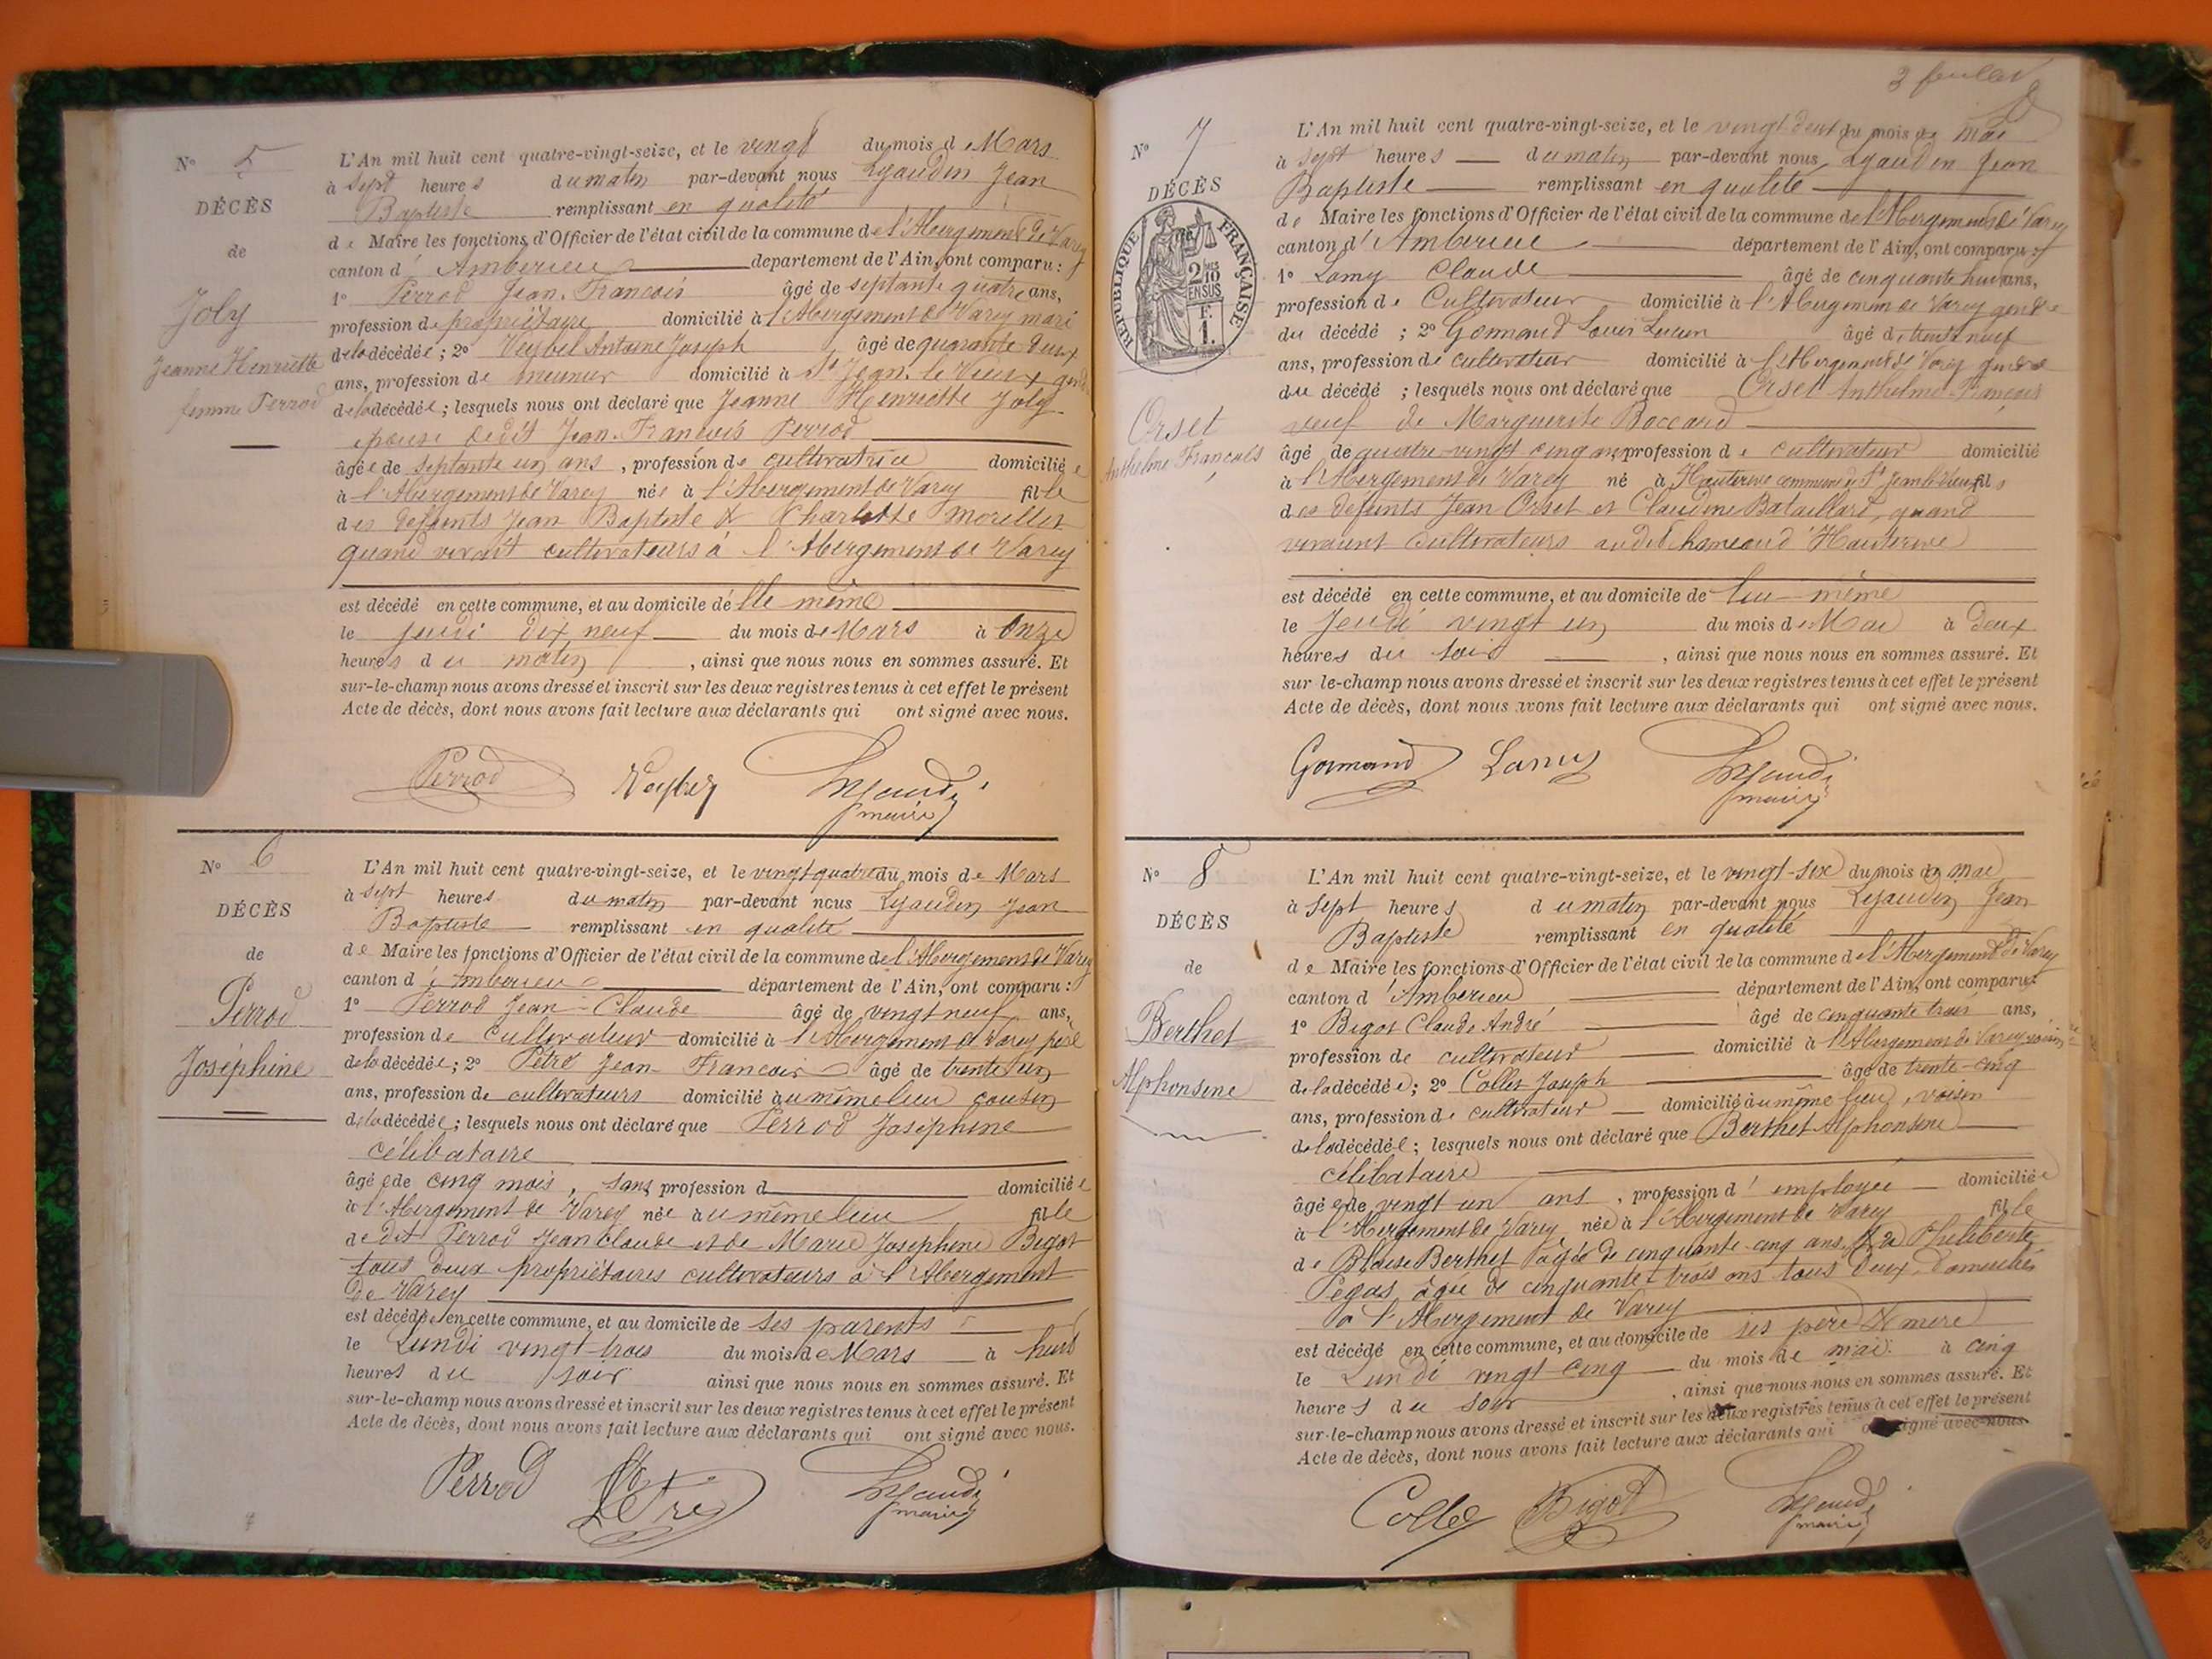 N° 5
DÉCÈS
de
Joly
Jeanne Henriette
femme Perrod
L'An mil huit cent quatre-vingt-seize, et le vingt du mois de Mars
à sept heures du matin par-devant nous Lyaudin Jean
Baptiste remplissant en qualité
de Maire les fonctions d'Officier de l'état civil de la commune de l'Abergement de Varey
canton d'Amberieu département de l'Ain, ont comparu :
1° Perrod Jean-Francois âgé de septante quatre ans,
profession de propriétaire domicilié à l'Abergement de Varey mari
de la décédée ; 2° Veybel Antoine Joseph âgé de quarante deux
ans, profession de meunier domicilié à St Jean-le Vieux gendre
de la décédée ; lesquels nous ont déclaré que Jeanne Henriette Joly
épouse dudit Jean-Francois Perrod
âgée de septante un ans , profession de cultivatrice domiciliée
à l'Abergement de Varey née à l'Abergement de Varey fille
des defunts Jean Baptiste & Charlotte Morellet
quand vivait cultivateurs à l'Abergement de Varey
est décédé en cette commune, et au domicile de elle même
le jeudi dix neuf du mois de Mars à Onze
heures du matin , ainsi que nous nous en sommes assuré. Et
sur-le-champ nous avons dressé et inscrit sur les deux registres tenus à cet effet le présent
Acte de décès, dont nous avons fait lecture aux déclarants qui ont signé avec nous.
Perrod Lyaudin
maire
N° 6
DÉCÈS
de
Perrod
Joséphine
L'An mil huit cent quatre-vingt-seize, et le vingt quatre du mois de Mars
à sept heures du matin par-devant nous Lyaudin Jean
Baptiste remplissant en qualité
de Maire les fonctions d'Officier de l'état civil de la commune de l'Abergement de Varey
canton d'Amberieu département de l'Ain, ont comparu :
1° Perrod Jean-Claude âgé de vingt neuf ans,
profession de Cultivateur domicilié à l'Abergement de Varey père
de la décédée ; 2° Pitre Jean-Francois âgé de trente un
ans, profession de cultivateurs domicilié au même lieu cousin
de la décédée ; lesquels nous ont déclaré que Perrod Joséphine
célibataire
âgée de cinq mois, sans profession d domiciliée
à l'Abergement de Varey née au même lieu fille
de dit Perrod Jean Claude et de Marie Josephine Bigot
tous deux propriétaires cultivateurs à l'Abergement
de Varey
est décédée en cette commune, et au domicile de ses parents
le Lundi vingt trois du mois de Mars à huit
heures du soir ainsi que nous nous en sommes assuré. Et
sur-le-champ nous avons dressé et inscrit sur les deux registres tenus à cet effet le présent
Acte de décès, dont nous avons fait lecture aux déclarants qui ont signé avec nous.
Perrod Lyaudin
maire
N° 7
DÉCÈS
de
RÉPUBLIQUE FRANÇAISE
2/10 EN SUS
F. 1.
Orset
Anthelme Francois
L'An mil huit cent quatre-vingt-seize, et le vingt deux du mois de mai
à sept heures du matin par-devant nous Lyaudin Jean
Baptiste remplissant en qualité
de Maire les fonctions d'Officier de l'état civil de la commune de l'Abergement de Varey
canton d'Amberieu département de l'Ain, ont comparu :
1° Lamy Claude âgé de cinquante huit ans,
profession de Cultivateur domicilié à l'Abergement de Varey gendre
du décédé ; 2° Gormand Louis Lucien âgé de trente neuf
ans, profession de cultivateur domicilié à l'Abergement de Varey gendre
du décédé ; lesquels nous ont déclaré que Orset Anthelme-Francois
veuf de Marguerite Boccard
âgé de quatre-vingt cinq ans, profession de cultivateur domicilié
à l'Abergement de Varey né à Hauterive commune de St Jean le Vieux fils
des defunts Jean Orset et Claudine Bataillard, quand
vivaient Cultivateurs audit hameau d'Hauterive
est décédé en cette commune, et au domicile de lui-même
le Jeudi vingt un du mois de Mai à Deux
heures du soir , ainsi que nous nous en sommes assuré. Et
sur-le-champ nous avons dressé et inscrit sur les deux registres tenus à cet effet le présent
Acte de décès, dont nous avons fait lecture aux déclarants qui ont signé avec nous.
Gormand Lamy Lyaudin
maire
N° 8
DÉCÈS
de
Berthet
Alphonsine
L'An mil huit cent quatre-vingt-seize, et le vingt-six du mois de mai
à sept heures du matin par-devant nous Lyaudin Jean
Baptiste remplissant en qualité
de Maire les fonctions d'Officier de l'état civil de la commune de l'Abergement de Varey
canton d'Amberieu département de l'Ain, ont comparu :
1° Bigot Claude André âgé de cinquante trois ans,
profession de cultivateur domicilié à l'Abergement de Varey voisin
de la décédée ; 2° Collet Joseph âgé de trente-cinq
ans, profession de cultivateur domicilié au même lieu, voisin
de la décédée ; lesquels nous ont déclaré que Berthet Alphonsine
célibataire
âgée de vingt un ans , profession d'employée domiciliée
à l'Abergement de Varey née à l'Abergement de Varey fille
de Blaise Berthet âgé de cinquante-cinq ans, & de Philiberte
Pegas âgée de cinquante-trois ans tous deux domiciliés
à l'Abergement de Varey
est décédé en cette commune, et au domicile de ses père & mere
le Lundi vingt-cinq du mois de mai à cinq
heures du soir , ainsi que nous nous en sommes assuré. Et
sur-le-champ nous avons dressé et inscrit sur les deux registres tenus à cet effet le présent
Acte de décès, dont nous avons fait lecture aux déclarants qui signé avec nous.
Collet Bigot Lyaudin
maire